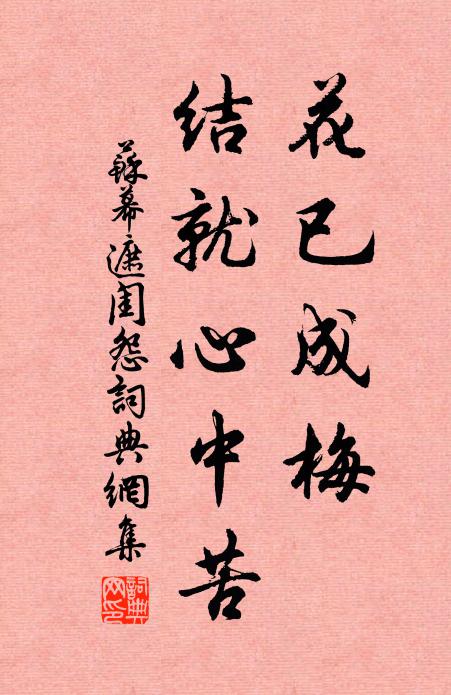 花已成梅
結就心中苦
蘇幕遮閨怨詞典網集
詞典
网印